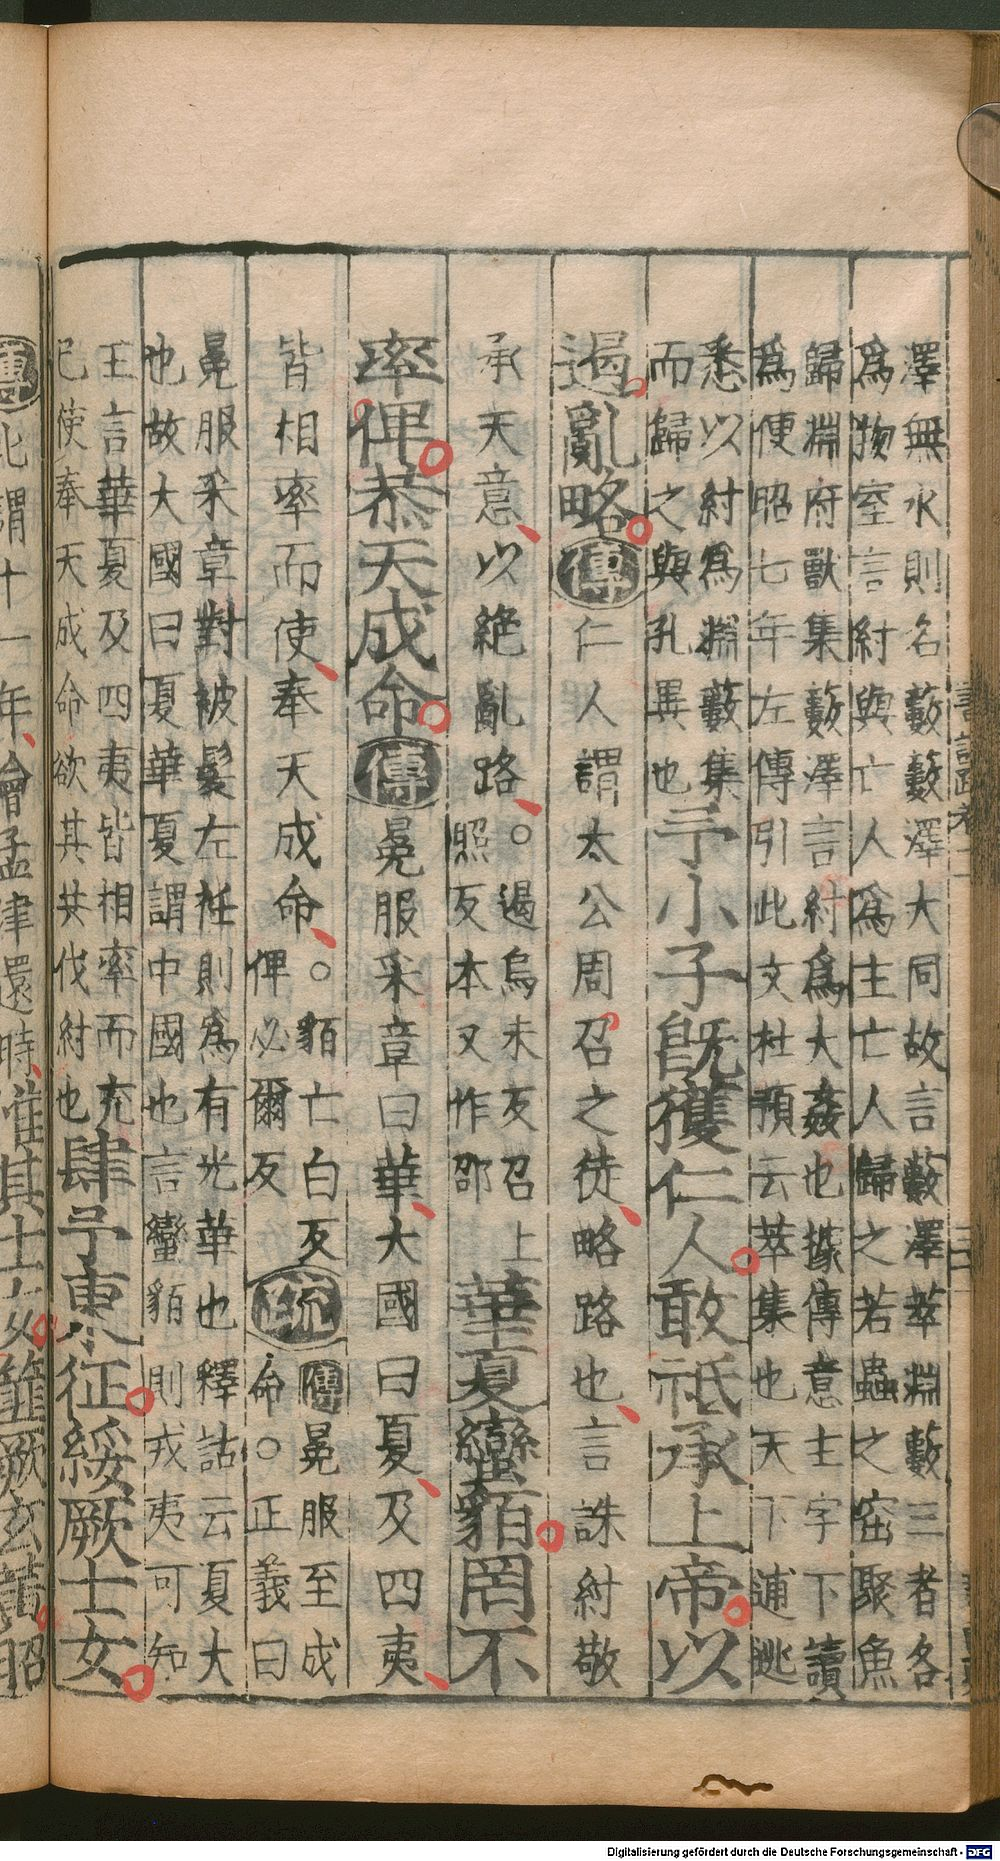 澤無水則名藪藪澤大同故言藪澤萃淵藪三者各
爲物室言紂與亡人爲主亡人歸之若蟲之窟聚魚
歸淵府獸集藪澤言紂爲大姦也據傳意主字下讀
爲便昭七年左傳引此文杜預云萃集也天下逋逃
悉以紂爲淵藪集
而歸之與孔異也
予小子旣獲仁人敢祗承上帝以
遏亂略傳仁人謂太公周召之徒略路也言誅紂敬
承天意以絶亂路○遏烏未反召上
照反本又作邵
華夏蠻貊罔不
率俾恭天成命傳冕服采章曰華大國曰夏及四夷
皆相率而使奉天成命○貊亡白反
俾必爾反
疏傳冕服至成
命○正義曰
冕服采章對被髮左衽則爲有光華也釋詁云夏大
也故大國曰夏華夏謂中國也言蠻貊則戎夷可知
王言華夏及四夷皆相率而充
已使奉天成命欲其共伐紂也
肆予東征綏厥士女
傳此謂十一年會孟津還時惟其士女篚厥玄黃昭
Digitalisierung gefördert durch die Deutsche Forschungsgemeinschaft - DFG